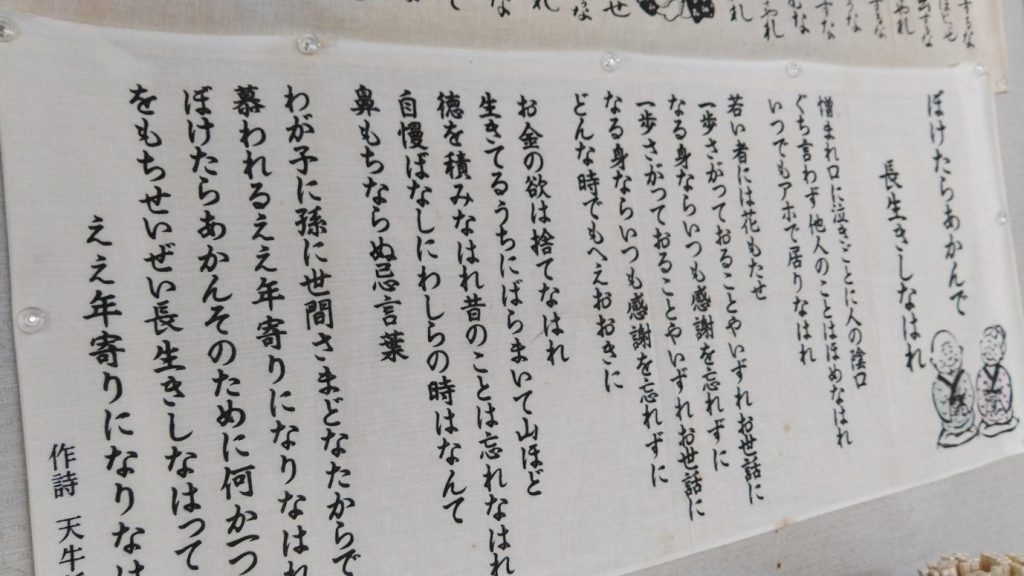 ぼけたらあかんで
長生きしなはれ
憎まれ口に泣きごとに人の陰口
ぐち言わず他人のことはほめなはれ
いつでもアホで居りなはれ
若い者には花もたせ
一歩さがっておることやいずれお世話に
なる身ならいつも感謝を忘れずに
一歩さがっておることやいずれお世話に
なる身ならいつも感謝を忘れずに
どんな時でもへえおおきに
お金の欲は捨てなはれ
生きてるうちにばらまいて山ほど
徳を積みなはれ昔のことは忘れなはれ
自慢ばなしにわしらの時はなんて
鼻もちならぬ忌言葉
わが子に孫に世間さまどなたからで
慕われるええ年寄りになりなはれ
ぼけたらあかんそのために何か一つ
をもちせいぜい長生きしなはって
ええ年寄りになりなは
作詩 天牛